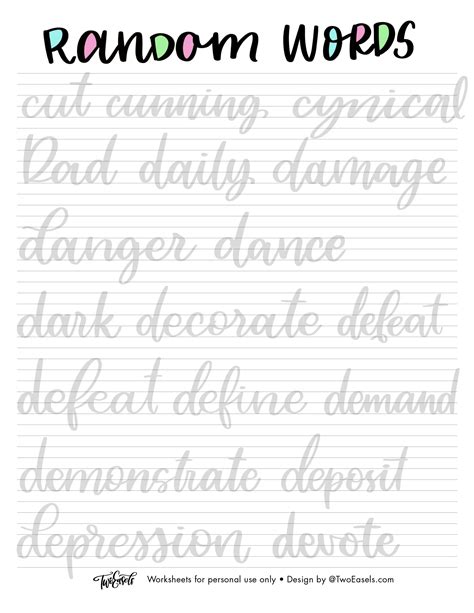 RANDOM WORDS
cut cunning cynical
Dad daily damage
danger dance
dark decorate defeat
defeat define demand
demonstrate deposit
depression devote
TwoEasels Worksheets for personal use only • Design by @TwoEasels.com